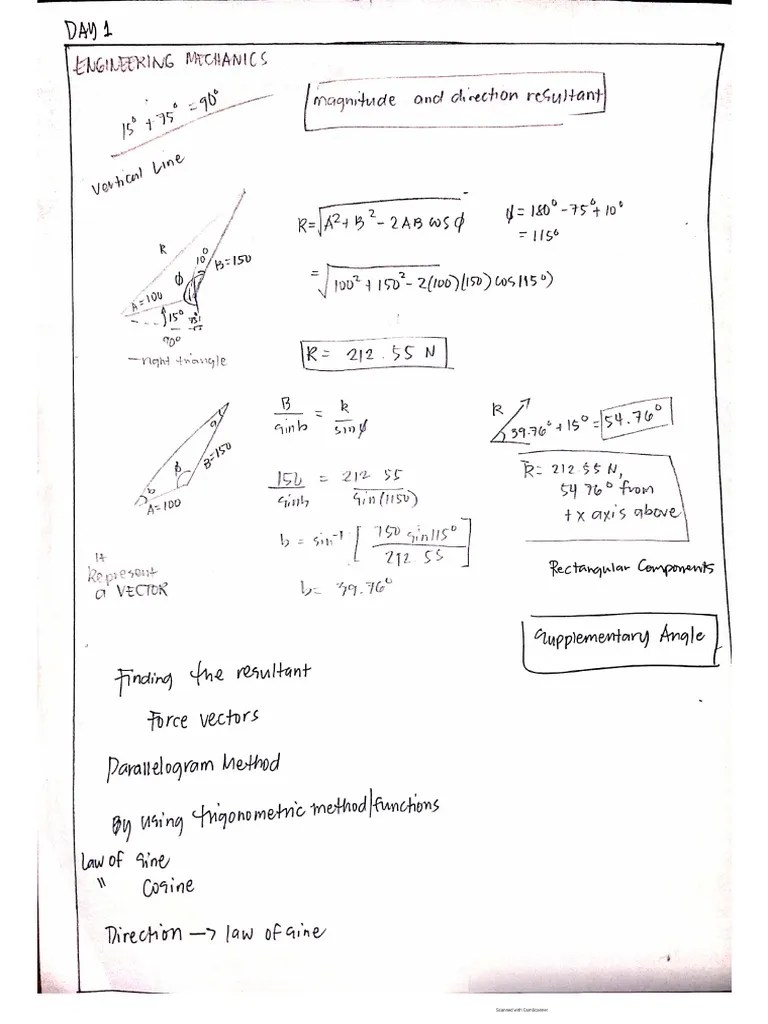 DAY 1
ENGINEERING MECHANICS
15° + 75° = 90°
Vertical Line
magnitude and direction resultant
R
10°
B=150
φ
A=100
15°
90°
right triangle
R=√A²+B²-2AB cos φ
=√100²+150²-2(100)(150)cos115°)
R= 212.55 N
φ=180°-75°+10°
=115°
a
B=150
β
b
A=100
It
Represent
a VECTOR
B/sinb = R/sinφ
150/sinb = 212 55/sin(115°)
b = sin⁻¹ [150 sin115°/212.55]
b= 39.76°
R
39.76°+15°=54.76°
R= 212.55N,
54 76° from
+x axis above
Rectangular Components
Supplementary Angle
Finding the resultant
Force vectors
Parallelogram Method
By using trigonometric method/functions
Law of sine
" Cosine
Direction → law of sine
Scanned with CamScanner